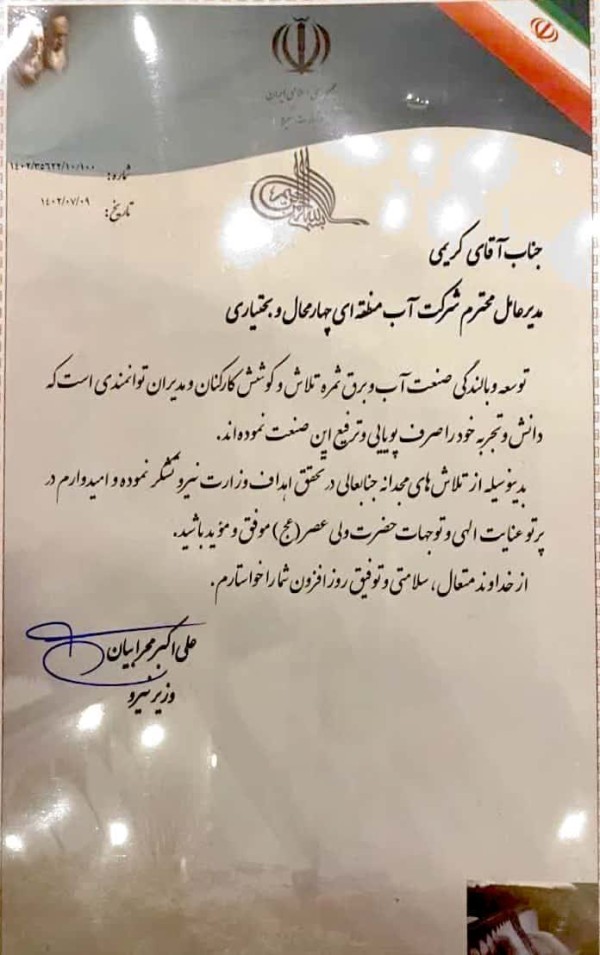 جمهوری اسلامی ایران
وزارت نیرو
شماره: ۱۴۰۲/۳۵۶۲۲/۱۰/۱۰۰
تاریخ: ۱۴۰۲/۰۷/۰۹
جناب آقای کریمی
مدیرعامل محترم شرکت آب منطقه ای چهارمحال و بختیاری
توسعه و بالندگی صنعت آب و برق ثمره تلاش و کوشش کارکنان و مدیران توانمندی است که
دانش و تجربه خود را صرف پویایی و ترفیع این صنعت نموده اند.
بدینوسیله از تلاش های مجدانه جنابعالی در تحقق اهداف وزارت نیرو تشکر نموده و امیدوارم در
پرتو عنایت الهی و توجهات حضرت ولی عصر (عج) موفق و مؤید باشید.
از خداوند متعال، سلامتی و توفیق روزافزون شما را خواستارم.
علی اکبر محرابیان
وزیر نیرو